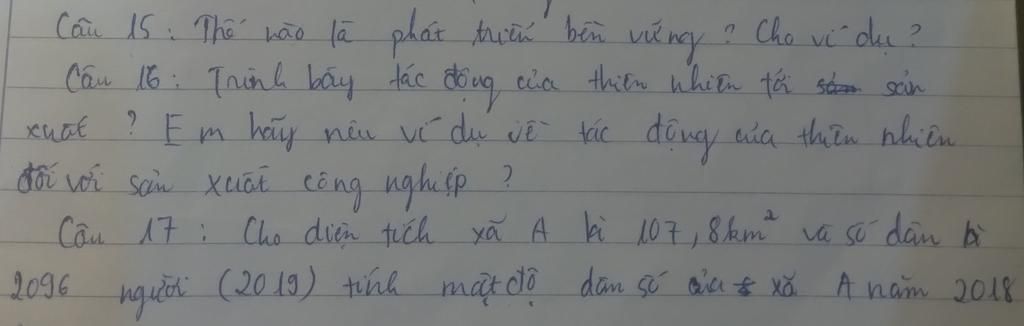 Câu 15 : Thế nào là phát triển bền vững ? Cho ví dụ ?
Câu 16 : Trình bày tác động của thiên nhiên tới sản
xuất ? Em hãy nêu ví dụ về tác động của thiên nhiên
đối với sản xuất công nghiệp ?
Câu 17 : Cho diện tích xã A là 107,8km² và số dân là
2096 người (2019) tính mật độ dân số của xã A năm 2018